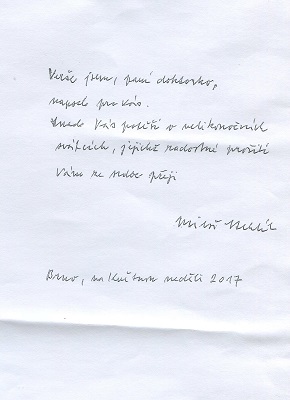 Verše jsem, paní doktorko,
napsal pro Vás.
Snad Vás potěší o velikonočních
svátcích, jejichž radostné prožití
Vám ze srdce přeji
Miloš
Brno, na Květnou neděli 2017